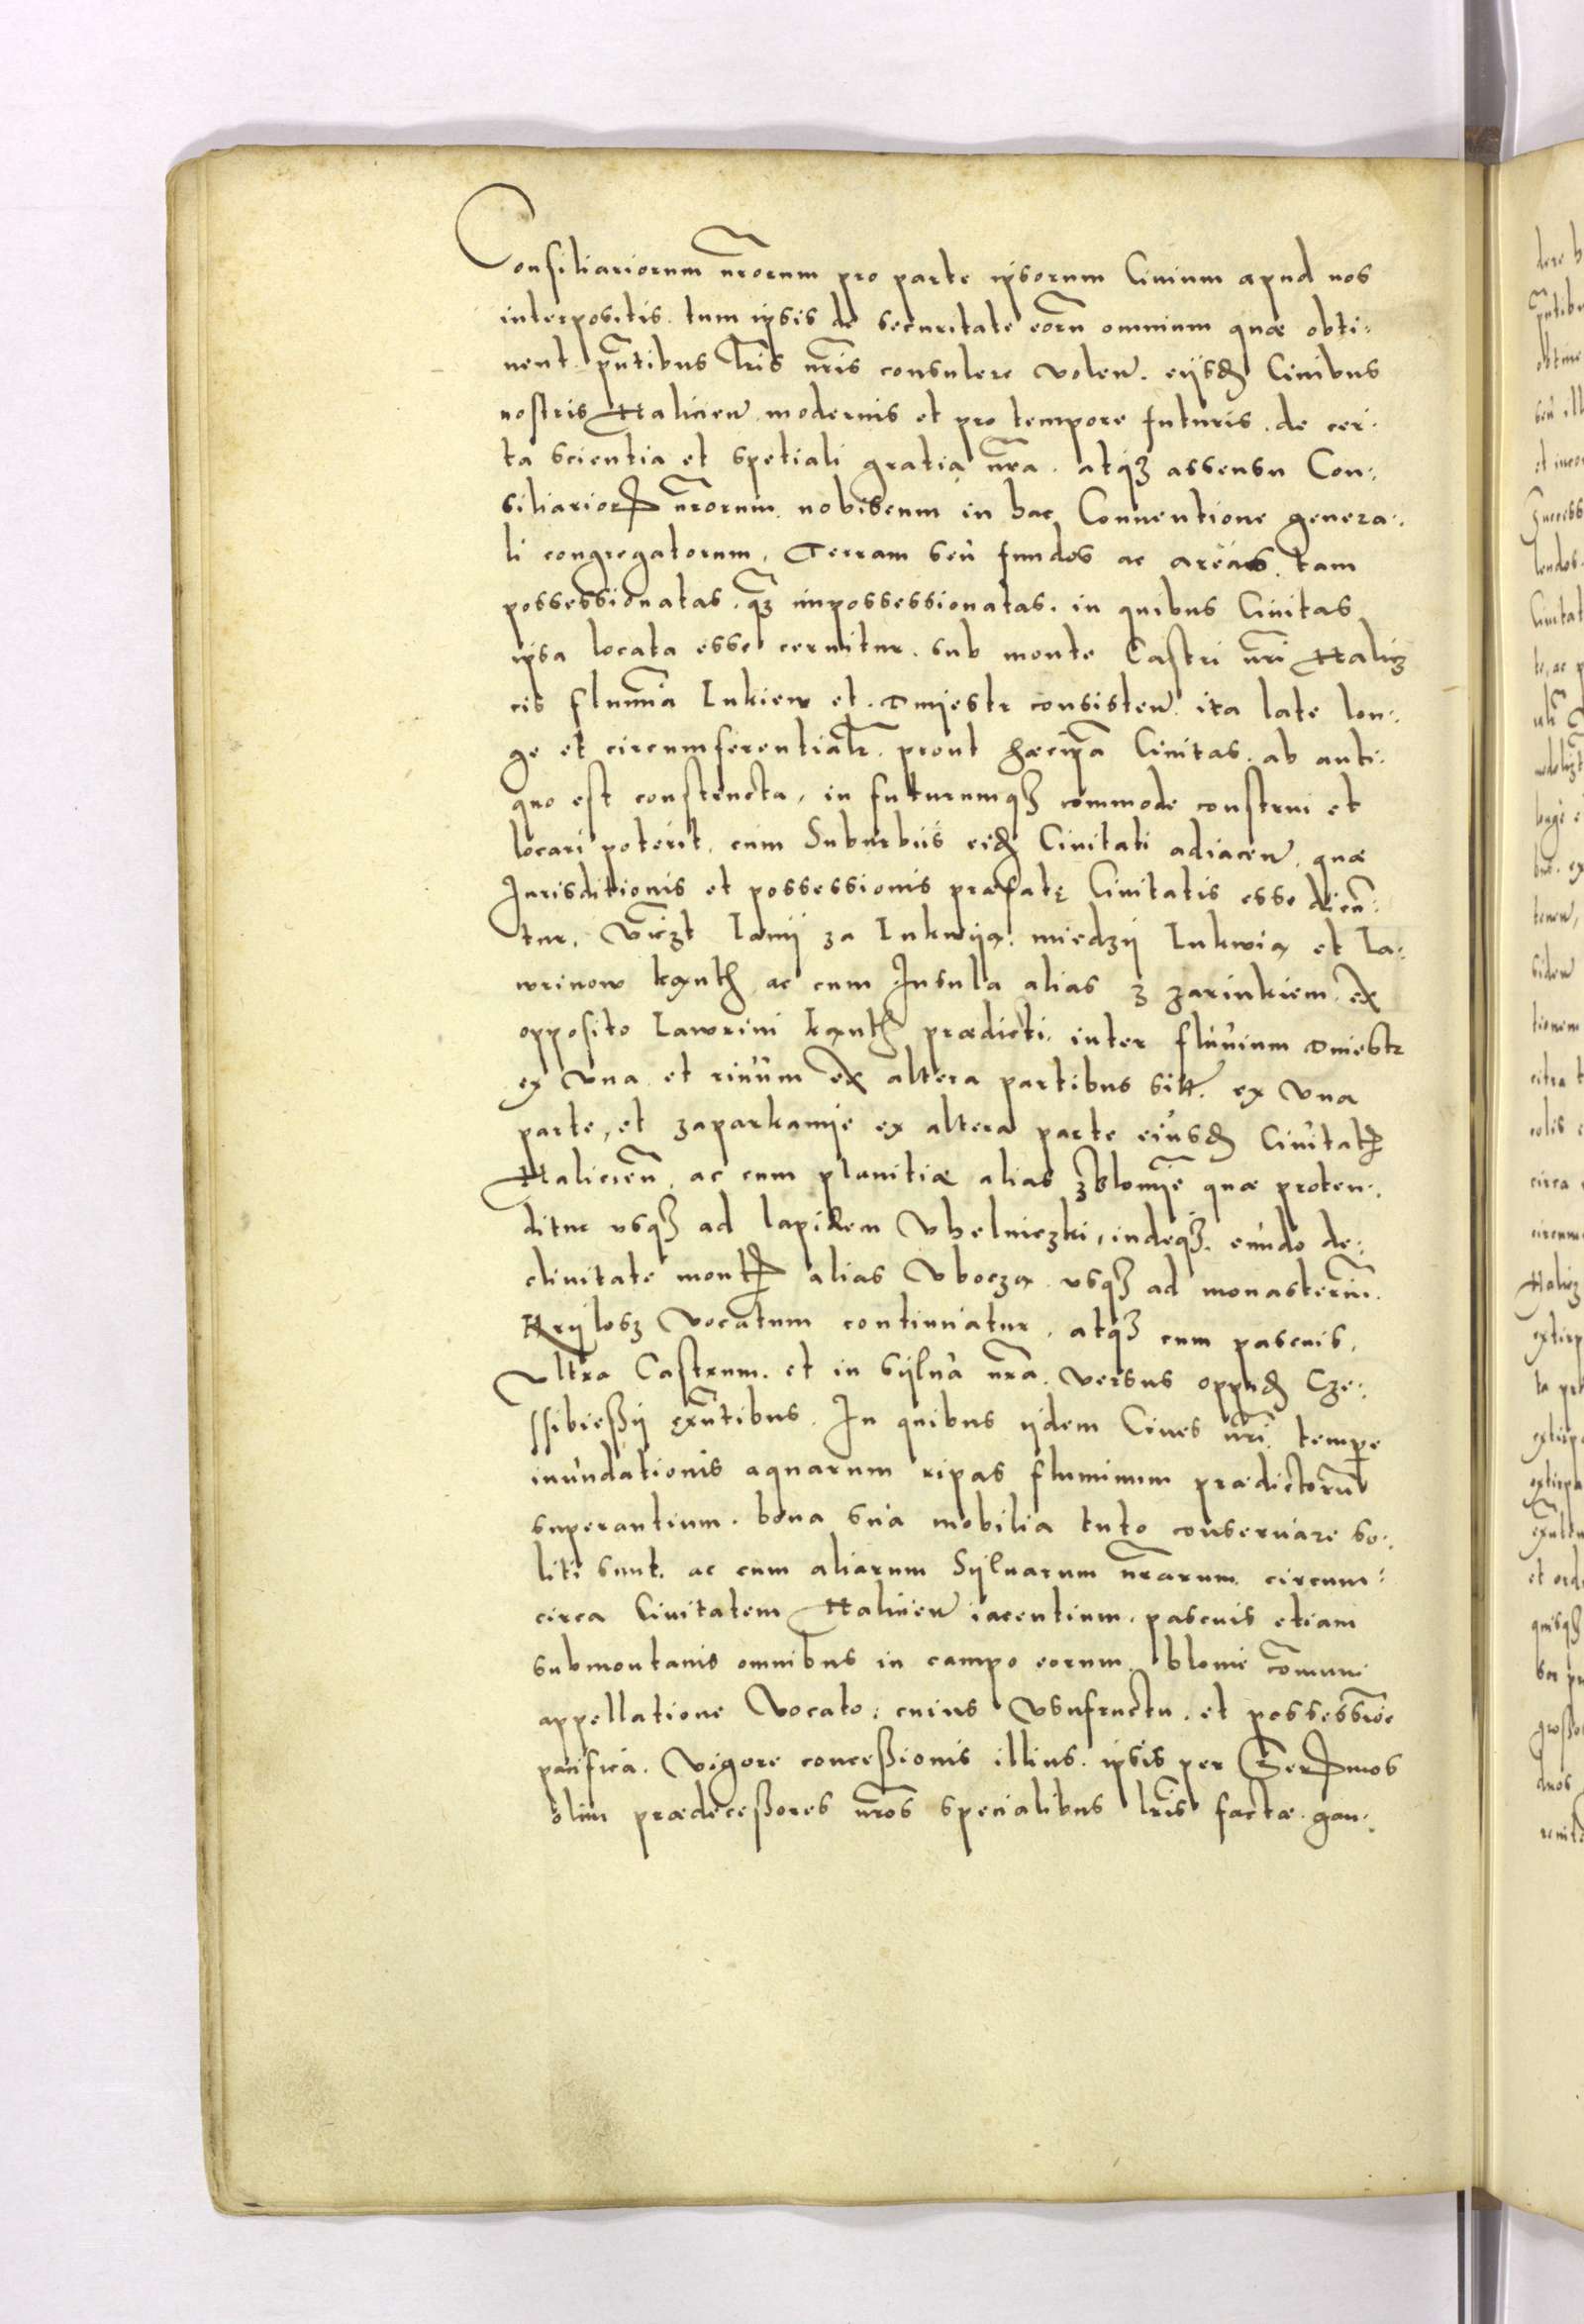 Consiliariorum nrorum pro parte ipsorum Civium apud nos
interpositis. tum ipsis de securitate eoru omnium quæ obti:
nent. pntibus lris nris consulere volen. eiisd Civibus
nostris Halicien modernis et pro tempore futuris. de cer:
ta scientia et spetiali gratia nra. atq3 assensu Con:
siliarior nrorum nobiscum in hac Conventione genera:
li congregatorum, Terram seu fundos ac areas. tam
possessionatas. q3 impossessionatas. in quibus Civitas
ipsa locata esse cernitur. sub monte Castri nri Halicz
cis flumina Lukiew et Dniestr consisten. ita late lon:
ge et circumferentialr. prout hæc ipa Civitas. ab anti:
quo est constructa, in futurumq3 commode construi et
locari poterit, cum Suburbiis eid Civitati adiacen. quæ
Iurisditionis et possessionis præfatę Civitatis esse dicun:
tur, viczt Lanij za Lukwiją. miedzij Lukwią et La:
wrinow kąnth ac cum Insula alias z zarinkiem. ex
opposito Lawrini kąnth prædicti. inter fluvium Dniestr
ex una et rivum ex altera partibus sitt. ex una
parte, et zaparkamie ex altera parte eiusd Civitat
Halicien, ac cum planitiæ alias zblomie quæ proten:
ditur usq3 ad lapidem Uhelniczki, indeq3. eundo de:
clivitate mont alias Ubocza usq3 ad monasterium.
Krijlosz vocatum continuatur, atq3 cum pascuis,
ultra Castrum. et in sijlva nra. versus oppid Cze:
ssibiessij exntibus. In quibus ijdem Cives nri. tempe
inundationis aquarum ripas fluminum prædictorum
superantium. bona sua mobilia tuto conservare so:
liti sunt. ac cum aliarum Sijlvarum nrarum circum:
circa Civitatem Halicien iacentium, pascuis etiam
submontanis omnibus in campo eorum. blonie comuni
appellatione vocato. cuius usufructu. et possessione
pacifica. vigore concessionis illius. ipsis per Sermos
olim prædecessores nros specialibus lris factæ. gau: